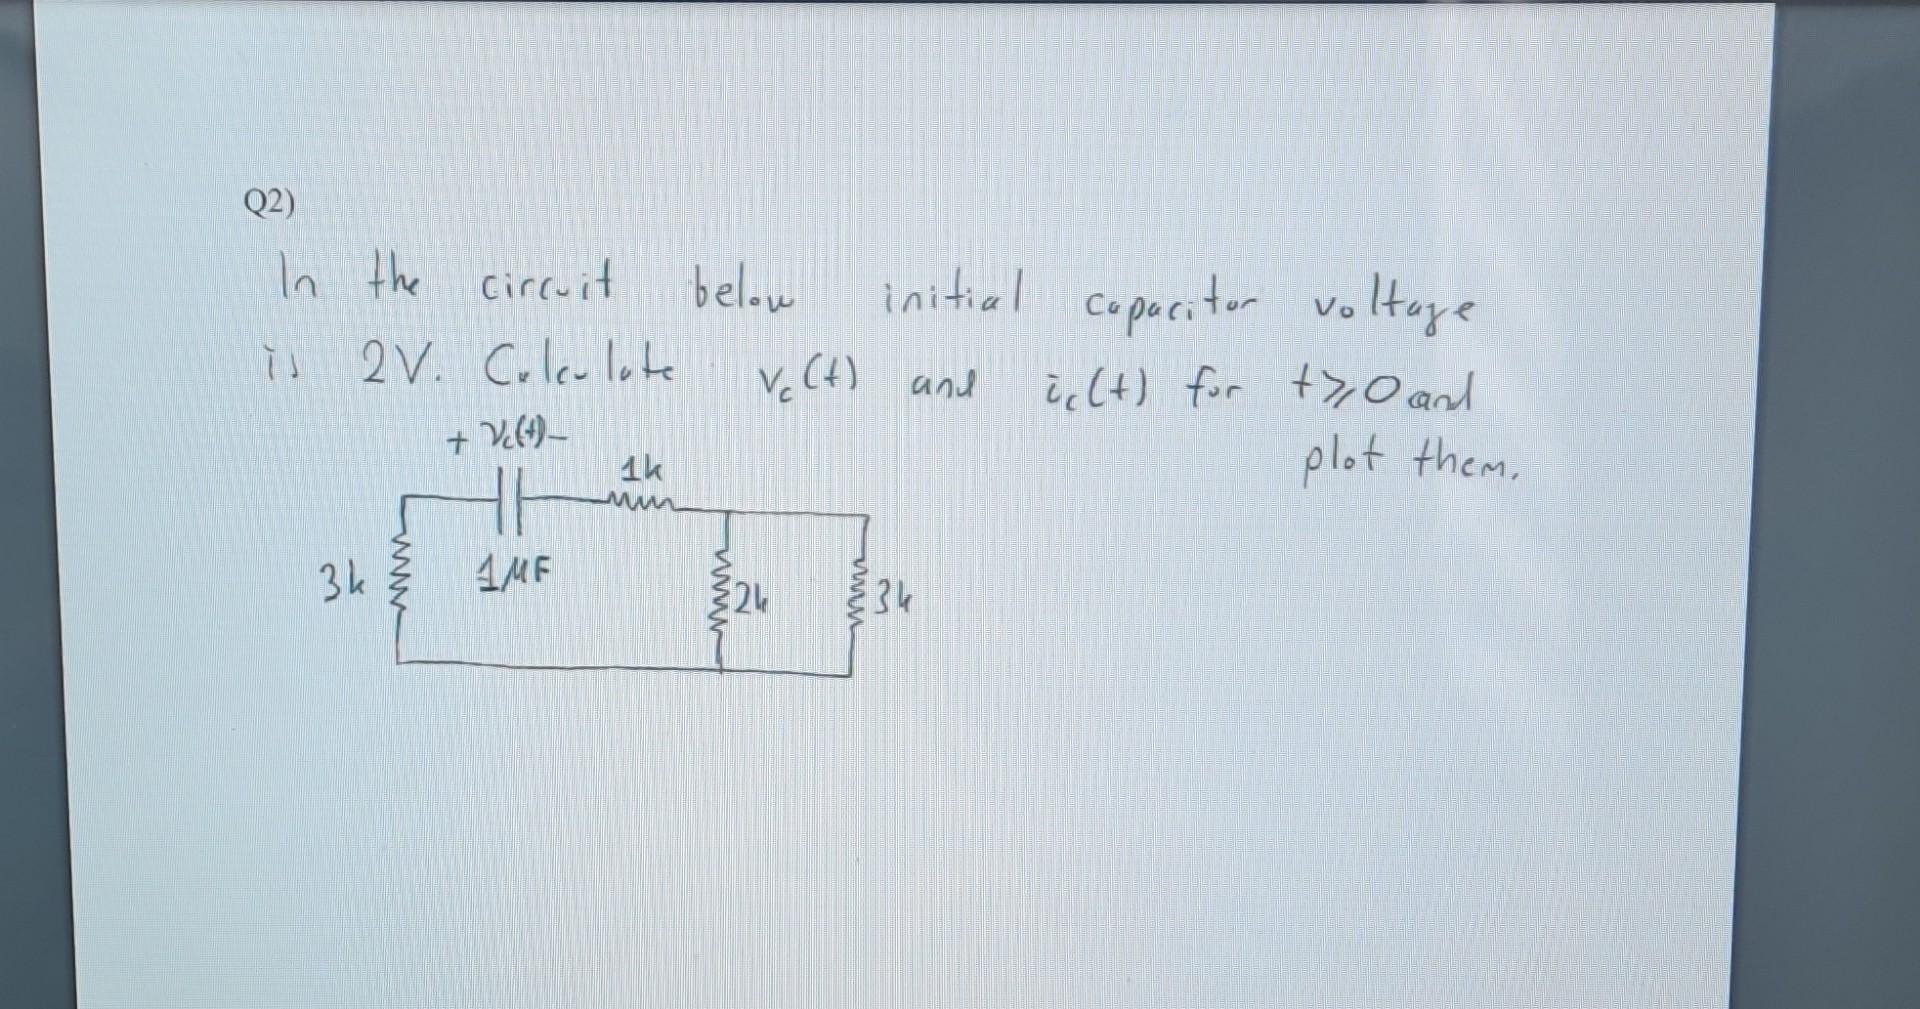 Q2)
In the circuit below initial capacitor voltage
is 2V. Calculate vc(t) and ic(t) for t⩾0 and
plot them.
+ Vc(t) -
1k
3k
1μF
2k
3k